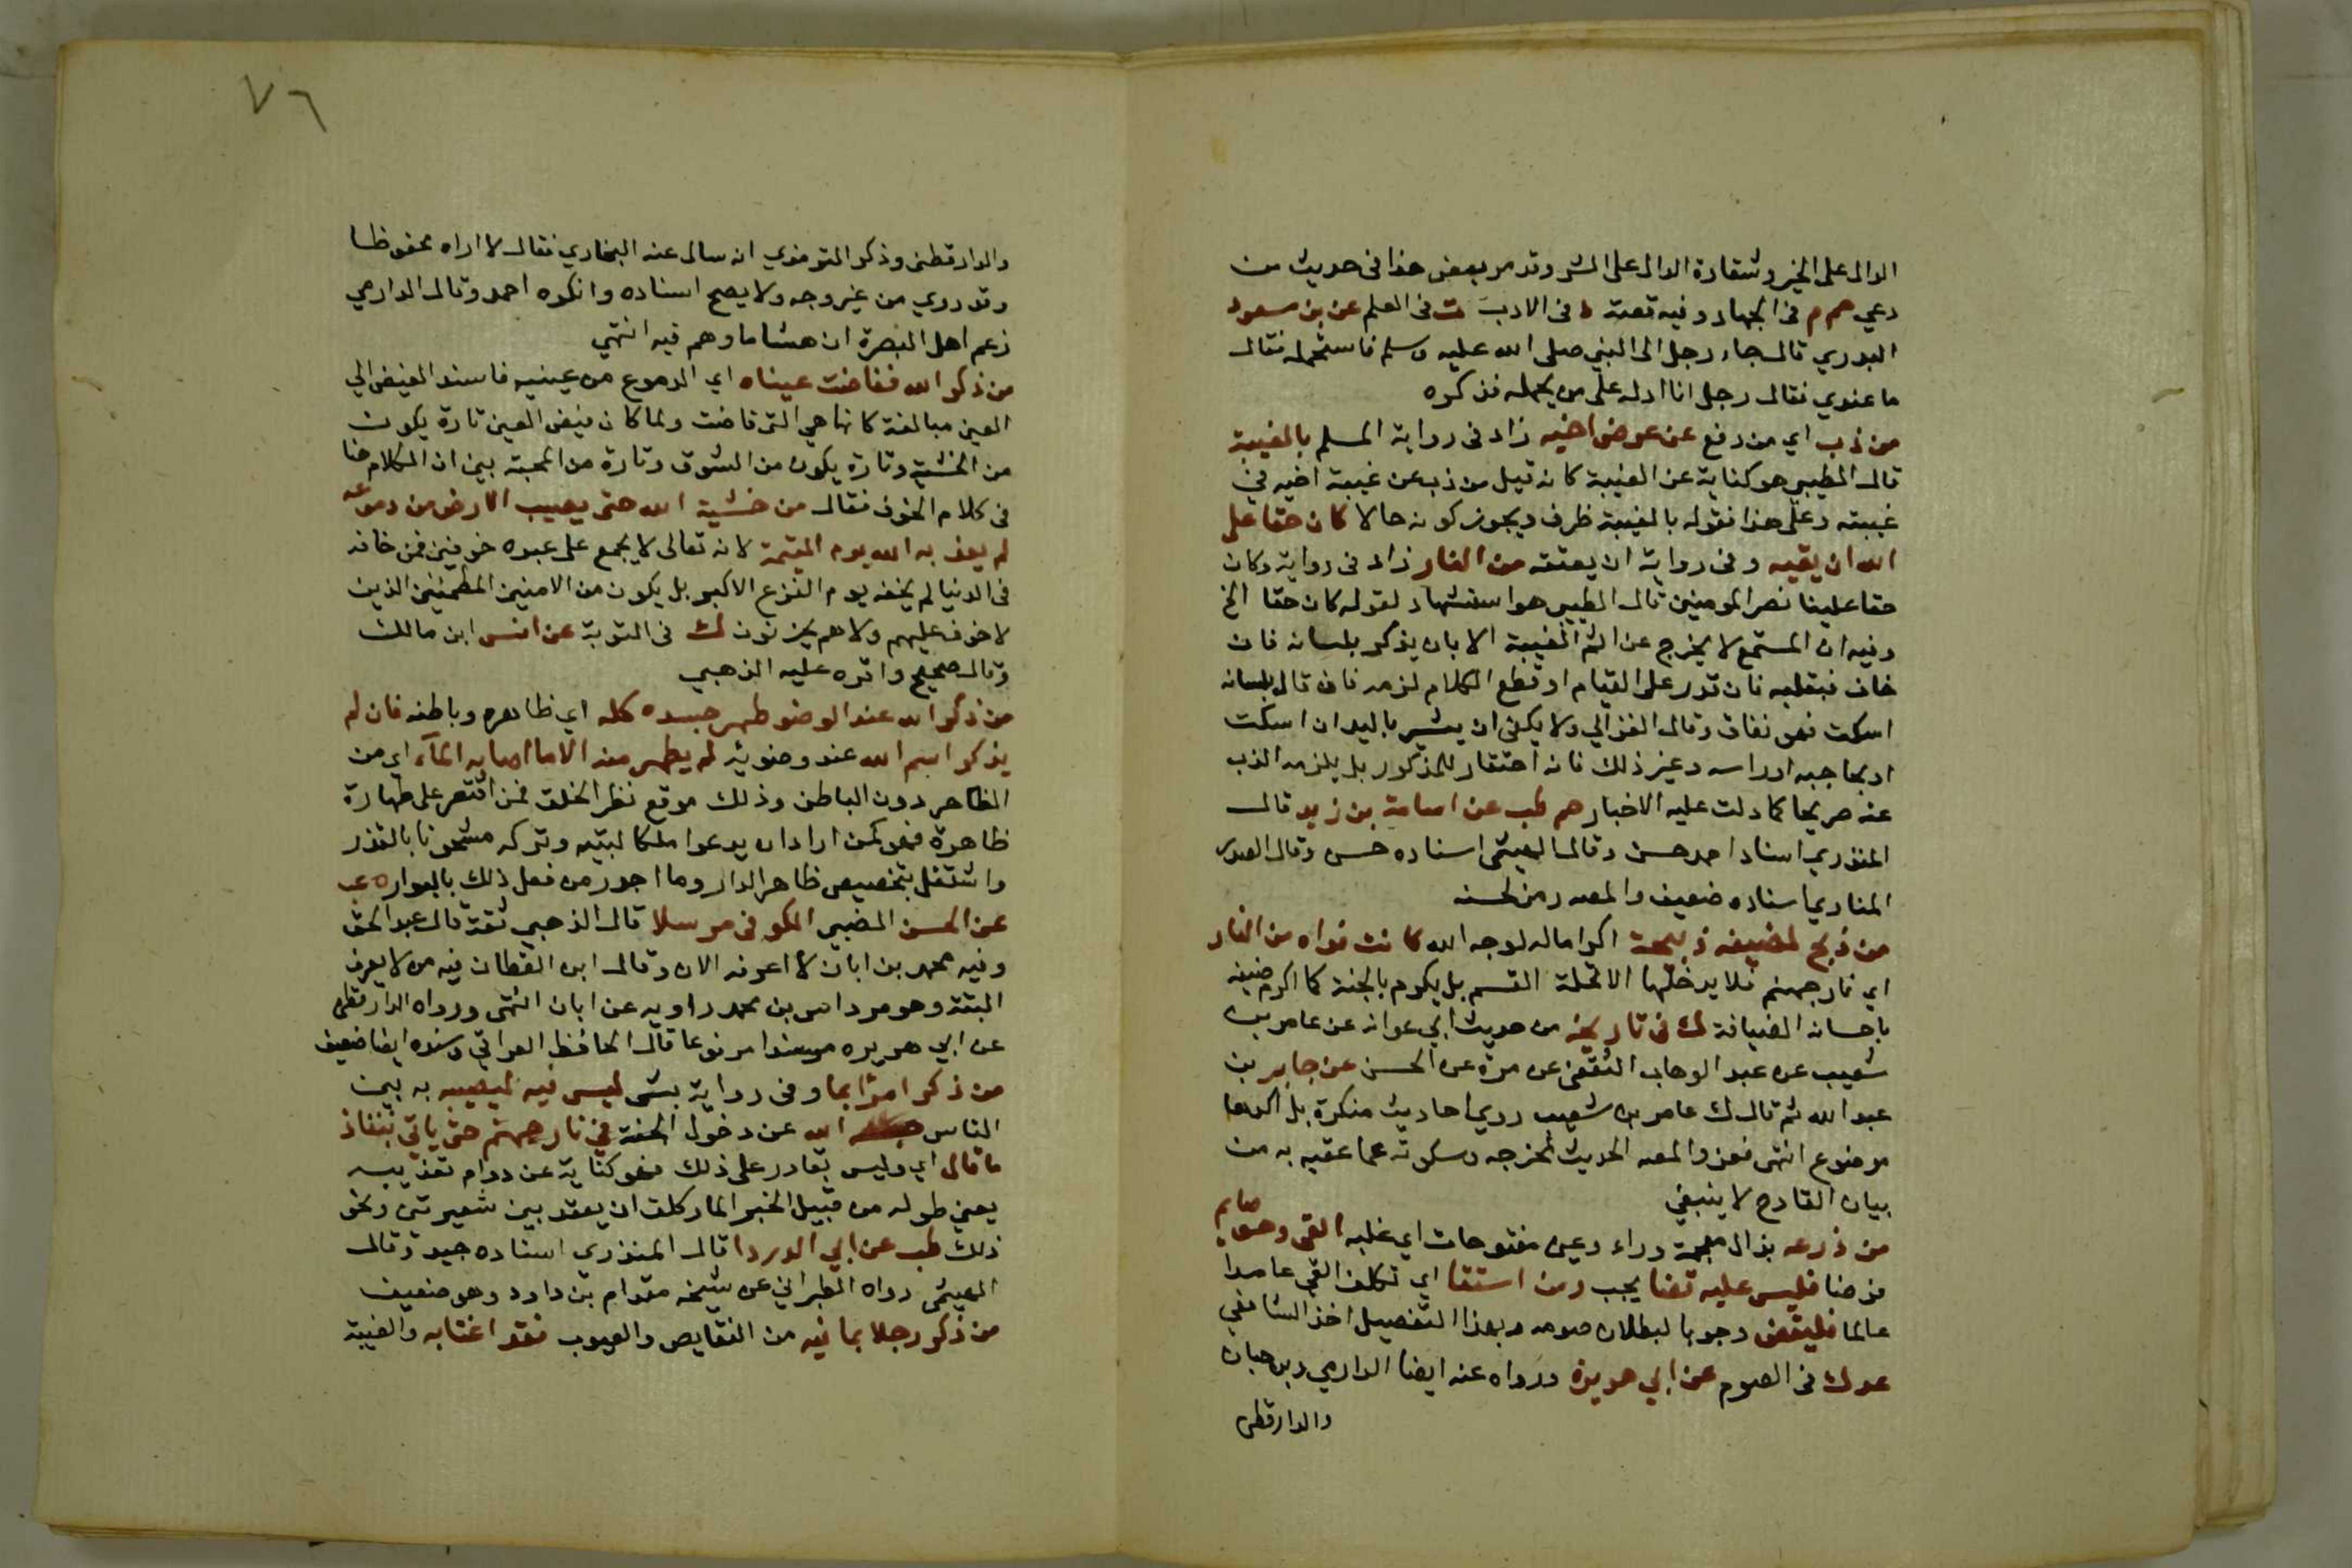 الدال على الخير وشقاوة الدال على الشر وقد مر بعض هذا في حديث من
دعي حم م في الجهاد وفيه قصة د في الادب ت في العلم عن بن مسعود
البدري قال جاء رجل الى النبي صلى الله عليه وسلم فاستحمله فقال
ما عندي فقال رجل انا ادله على من يحمله فذكره
من ذب اي من دفع عن عرض اخيه زاد في رواية المسلم بالغيبة
قال الطيبي هو كناية عن الغيبة كانه قيل من ذب عن غيبة اخيه في
غيبته وعلى هذا فقوله بالغيبة ظرف ويجوز كونه حالا كان حقا على
الله ان يقيه وفي رواية ان يعتقه من النار زاد في رواية وكان
حقا علينا نصر المومنين قال الطيبي هو استشهاد لقوله كان حقا الخ
وفيه ان المستمع لا يخرج عن اثم الغيبة الا بان يذكر بلسانه فان
خاف فبقلبه فان قدر على القيام او قطع الكلام لزمه فان قال بلسانه
اسكت فهو نفاق وقال الغزالي ولا يكفي ان يشير باليد ان اسكت
او بحاجبه او راسه وغير ذلك فانه احتقار للمذكور بل يلزمه الذب
عنه صريحا كما دلت عليه الاخبار حم طب عن اسامة بن زيد قال
المنذري اسناد احمد حسن وقال الهيثمي اسناده حسن وقال الصدر
المناوي اسناده ضعيف والمصر رمز لحسنه
من ذبح لضيفه ذبيحة اكراما له لوجه الله كانت فداه من النار
اي نار جهنم فلا يدخلها الا تحلة القسم بل يكرم بالجنة كما اكرم ضيفه
باحسانه الضيافة ك في تاريخه من حديث ابي عوانه عن عامر بن
شعيب عن عبد الوهاب الثقفي عن مرة عن الحسن عن جابر بن
عبد الله ثم قال ك عامر بن شعيب روي احاديث منكرة بل اكثرها
موضوع انتهى فعزو المصه الحديث لمخرجه وسكوته عما عقبه به من
بيان القادح لا ينبغي
من ذرعه بذال معجمة وراء وعين مفتوحات اي غلبه القى وهو صايم
فرضا فليس عليه قضا يجب ومن استقا اي تكلف القي عامدا
عالما فليقض وجوبا لبطلان صومه وبهذا التفصيل اخذ الشافعي
عد ك في الصوم عن ابي هريرة ورواه عنه ايضا الدارمي وبن حبان
والدارقطى
٧٦
والدارقطني وذكر الترمذي انه سال عنه البخاري فقال لا اراه محفوظا
وقد روي من غير وجه ولا يصح اسناده وانكره احمد وقال الدارمي
زعم اهل البصرة ان هشاما وهم فيه انتهي
من ذكر الله ففاضت عيناه اي الدموع من عينيه فاسند الفيض الي
العين مبالغة كانها هي التي فاضت ولما كان فيض العين تارة يكون
من الخشية وتارة يكون من الشوق وتارة من المحبة بين ان الكلام هنا
في كلام الخوف فقال من خشية الله حتى يصيب الارض من دموعه
لم يعذبه الله يوم القيمة لانه تعالى لا يجمع على عبده خوفين فمن خافه
في الدنيا لم يخفه يوم الفزع الاكبر بل يكون من الامنين المطمئنين الذين
لا خوف عليهم ولا هم يحزنون ك في التوبة عن انس ابن مالك
وقال صحيح واقره عليه الذهبي
من ذكر الله عند الوضو طهر جسده كله اي ظاهره وباطنه فان لم
يذكر اسم الله عند وضوئه لم يطهر منه الا ما اصابه المآء اي من
الظاهر دون الباطن وذلك موقع نظر الخلق فمن اقتصر على طهارة
ظاهرة فهو كمن اراد ان يدعوا ملكا لبيته وتركه مشحونا بالقذر
واشتغل بتخصيص ظاهر الدار وما اجدر من فعل ذلك بالبوار ٥ عب
عن الحسن الضبي الكوفي مرسلا قال الذهبي ثقة قال عبد الحق
وفيه محمد بن ابان لا اعرفه الان وقال ابن القطان فيه من لا يعرف
البتة وهو مرداس بن محمد راويه عن ابان انتهى ورواه الدارقطى
عن ابي هريره مسندا مرفوعا قال الحافظ العراقي وسنده ايضا ضعيف
من ذكر امرا بما وفي رواية بشى ليس فيه ليعيبه به بين
الناس حبسه الله عن دخول الجنة في نار جهنم حتى ياتي بنفاذ
ما قال اي وليس بقادر على ذلك فهو كناية عن دوام تعذيبه
يعني طوله من قبيل الخبر المار كلف ان يعقد بين شعيرتين ونحو
ذلك طب عن ابي الدردا قال المنذري اسناده جيد وقال
الهيثمى رواه الطبراني عن شيخه مقدام بن داود وهو ضعيف
من ذكر رجلا بما فيه من النقايص والعيوب فقد اغتابه والغيبة